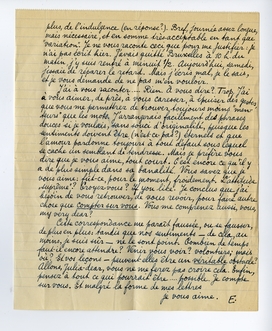 plus, de l'indulgence (en réponse?). Bref, journée assez longue,
mais nécessaire, et en somme irréacceptable en tant que
"variation". Je ne vous raconte ceci que pour me justifier: je
n'ai pas écrit hier. J'avais quitté Bruxelles à 10 h. du
matin, j'y suis rentré à minuit 1/2. Aujourd'hui, samedi,
j'essaie de réparer le retard. Mais j'écris mal, je le sais,
et je vous demande de ne pas m'en vouloir.
J'ai à vous raconter... Rien. À vous dire? Trop. J'ai
à vous aimer, de près, à vous caresser, à épuiser des gestes
que vous me permettrez de trouver toujours moins "men-
teurs" que les mots. J'arrangerais facilement des phrases
douces si je voulais, sans souci d'originalité, puisque les
sentiments doivent être (n'est-ce pas?) éternels et que
l'amour pardonne toujours à tout défaut sous lequel
se cache un semblant de tendresse. Mais je préfère vous
dire que je vous aime, tout court. C'est encore ce qu'il y
a de plus simple dans sa banalité. Vous savez que je
vous aime; fut-ce, pour le moment, froidement. Politesse
suprême? Croyez-vous? If you like. Je conclus que j'ai
besoin de vous retrouver, de vous revoir, pour faire autre
chose que compter sur vous. Vous me comprenez, aussi, vous,
my very dear?
Cette correspondance me paraît faussée, ou se fausser,
de plus en plus; tandis que nos sentiments – de cela, du
moins, je suis sûr – ne le sont point. Combien de temps
faut-il encore attendre? Vous vous voir? volontiers, mais
où? Et vos leçons – peuvent-elles être un véritable obstacle?
Allons, Julia dear, vous ne me ferez pas croire cela. Enfin,
pensez à tout ce qui pourrait être possible. Je compte sur
vous. Et malgré la forme de mes lettres
je vous aime. E.